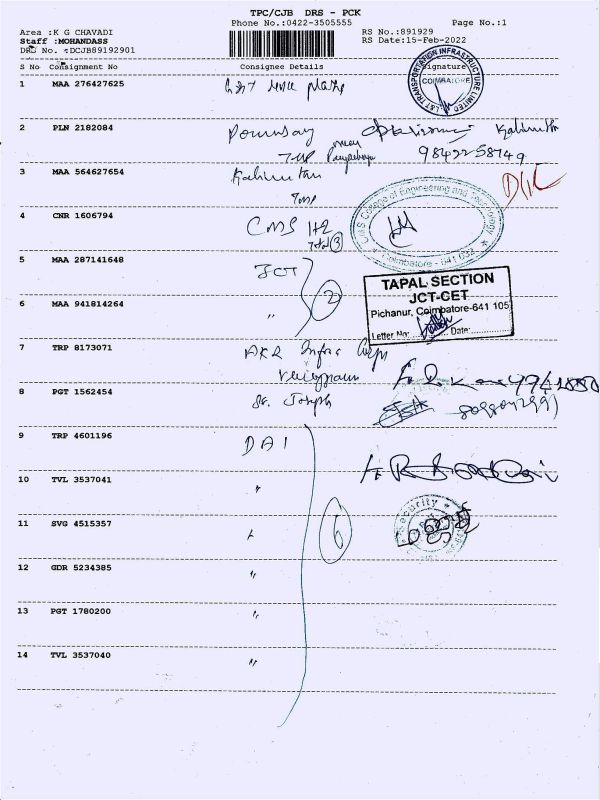 TPC/CJB DRS - PCK
Phone No.:0422-3505555
Page No.:1
Area :K G CHAVADI
Staff :MOHANDASS
DRS No. :DCJB89192901
RS No.:891929
RS Date:15-Feb-2022
S No Consignment No Consignee Details Signature
1 MAA 276427625
L&T TRANSPORTATION INFRASTRUCTURE LIMITED
COIMBATORE
2 PLN 2182084
9842258749
3 MAA 564627654
4 CNR 1606794 CMS
Total 3
CMS College of Engineering and Technology
Coimbatore - 641 032
5 MAA 287141648 JCT
2
TAPAL SECTION
JCT-CET
Pichanur, Coimbatore-641 105
Letter No: Date:
6 MAA 941814264 "
7 TRP 8173071 AKR Infra
8 PGT 1562454 St. Joseph
9 TRP 4601196 DAI
10 TVL 3537041 "
11 SVG 4515357 "
6
Security
12 GDR 5234385 "
13 PGT 1780200 "
14 TVL 3537040 "